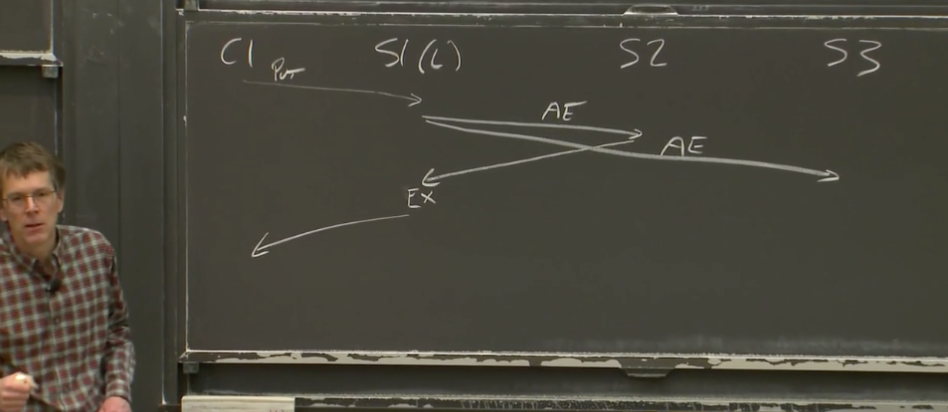 C1 S1(L) S2 S3
Put
AE
AE
EX